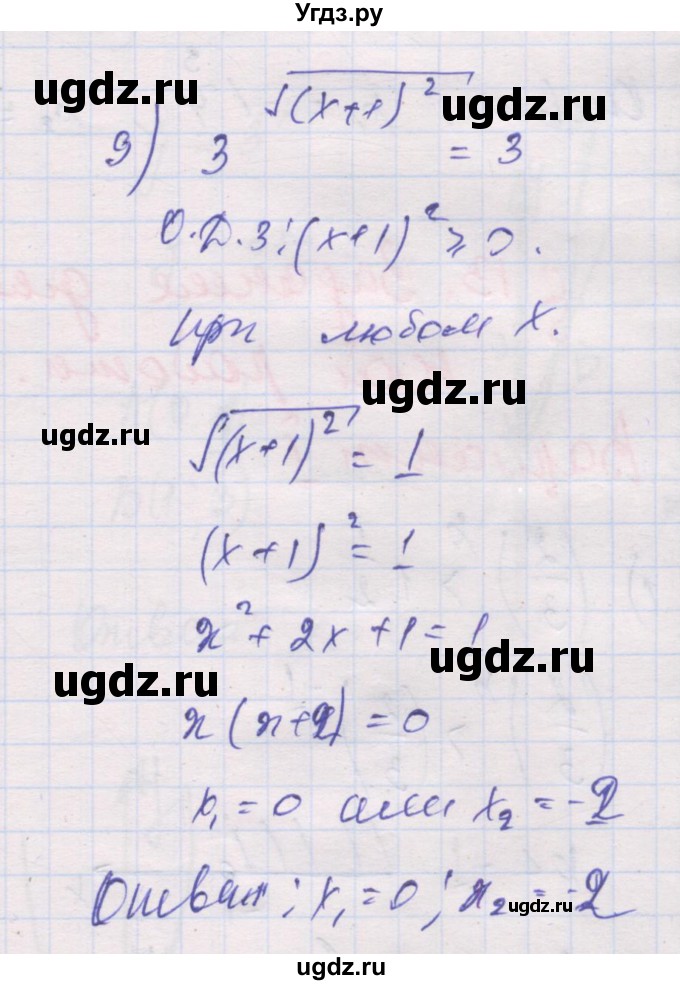 Угдз.ру
ugdz.ru ugdz.ru
9) 3^√(x+1)² = 3
О.Д.З: (x+1)² ≥ 0.
при любом x.
ugdz.ru
ugdz.ru
√(x+1)² = 1
(x+1)² = 1
x² + 2x + 1 = 1
ugdz.ru
ugdz.ru
x(x+2) = 0
x₁ = 0 или x₂ = -2
Ответ: x₁ = 0; x₂ = -2
ugdz.ru
ugdz.ru
ugdz.ru